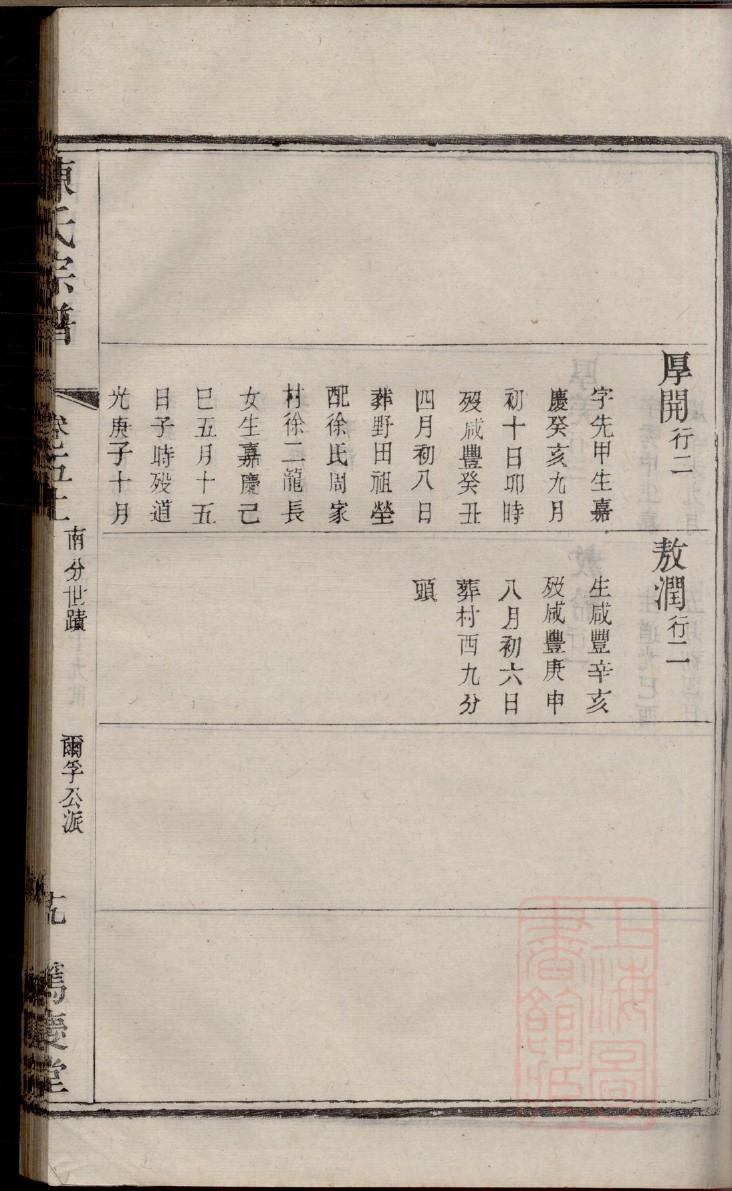 厚開行二
字先甲生嘉
慶癸亥九月
初十日卯時
歿咸豐癸丑
四月初八日
葬野田祖塋
配徐氏周家
村徐二龍長
女生嘉慶己
巳五月十五
日子時歿道
光庚子十月
敖潤行二
生咸豐辛亥
歿咸豐庚申
八月初六日
葬村西九分
頭
陳氏宗譜
卷之五十
南分世蹟
爾孚公派
篤慶堂
上海圖
書館藏